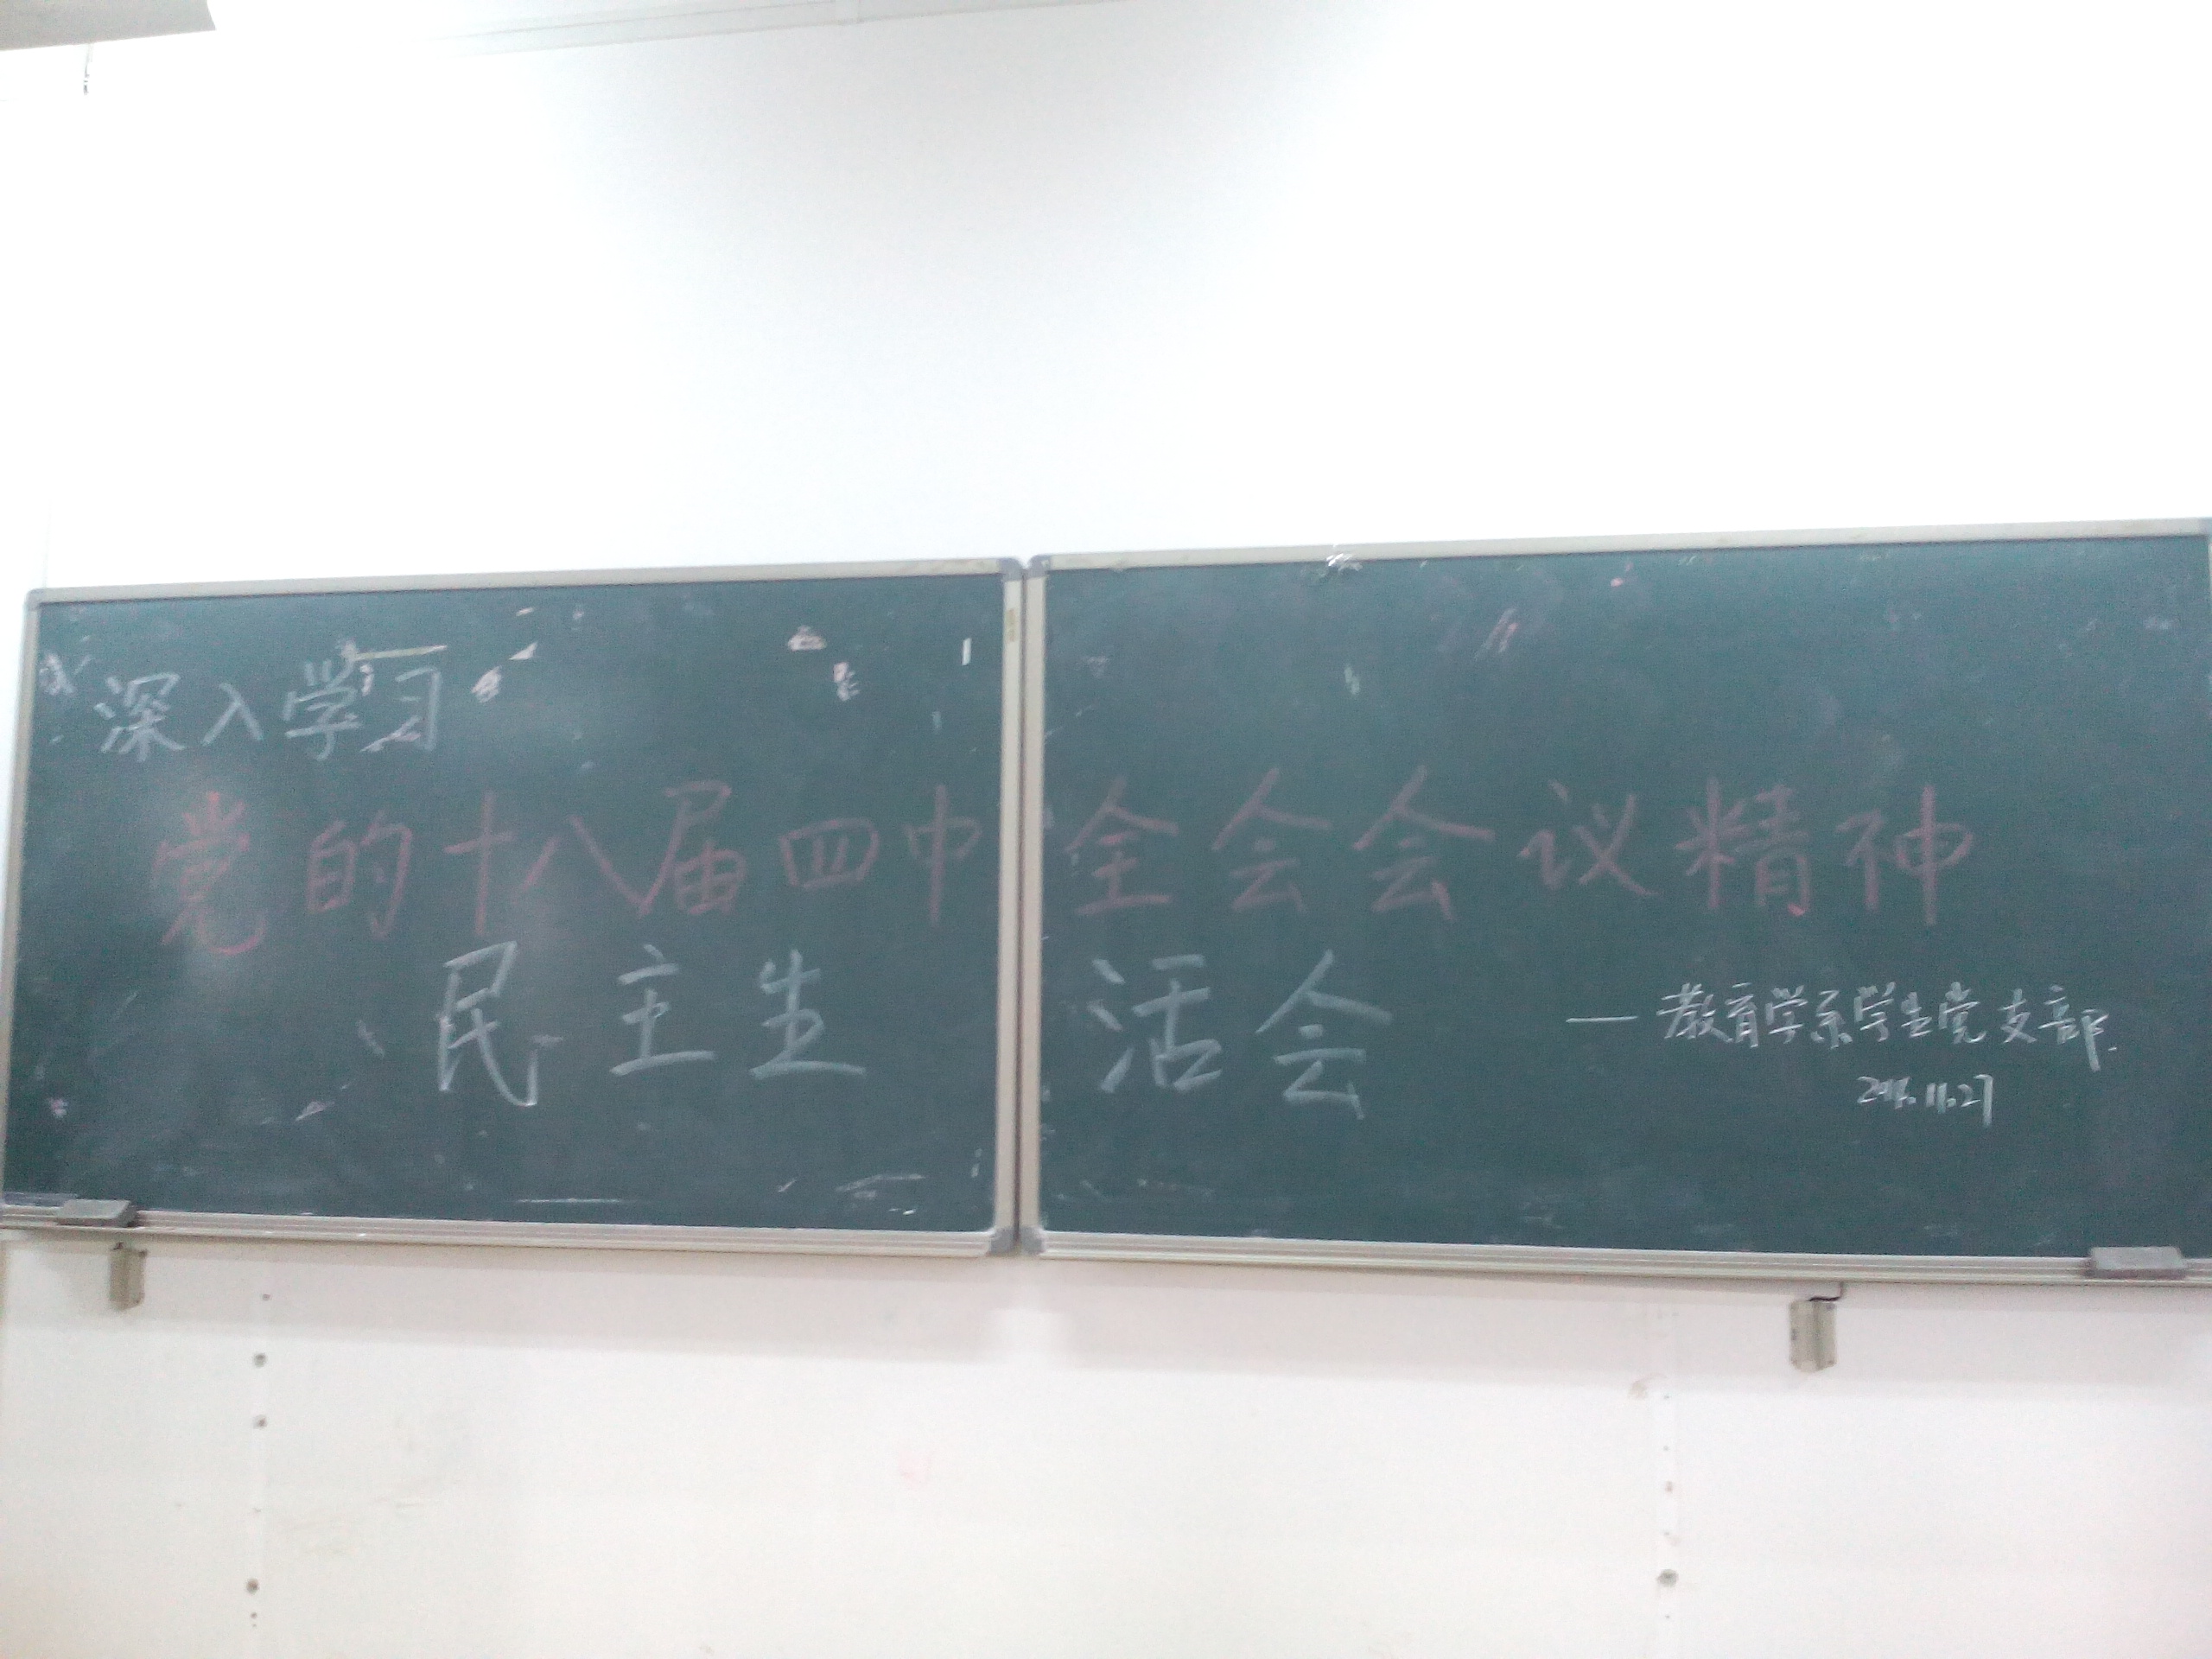 深入学习
党的十八届四中全会会议精神
民主生活会
—教育学系学生党支部.
2014.11.27